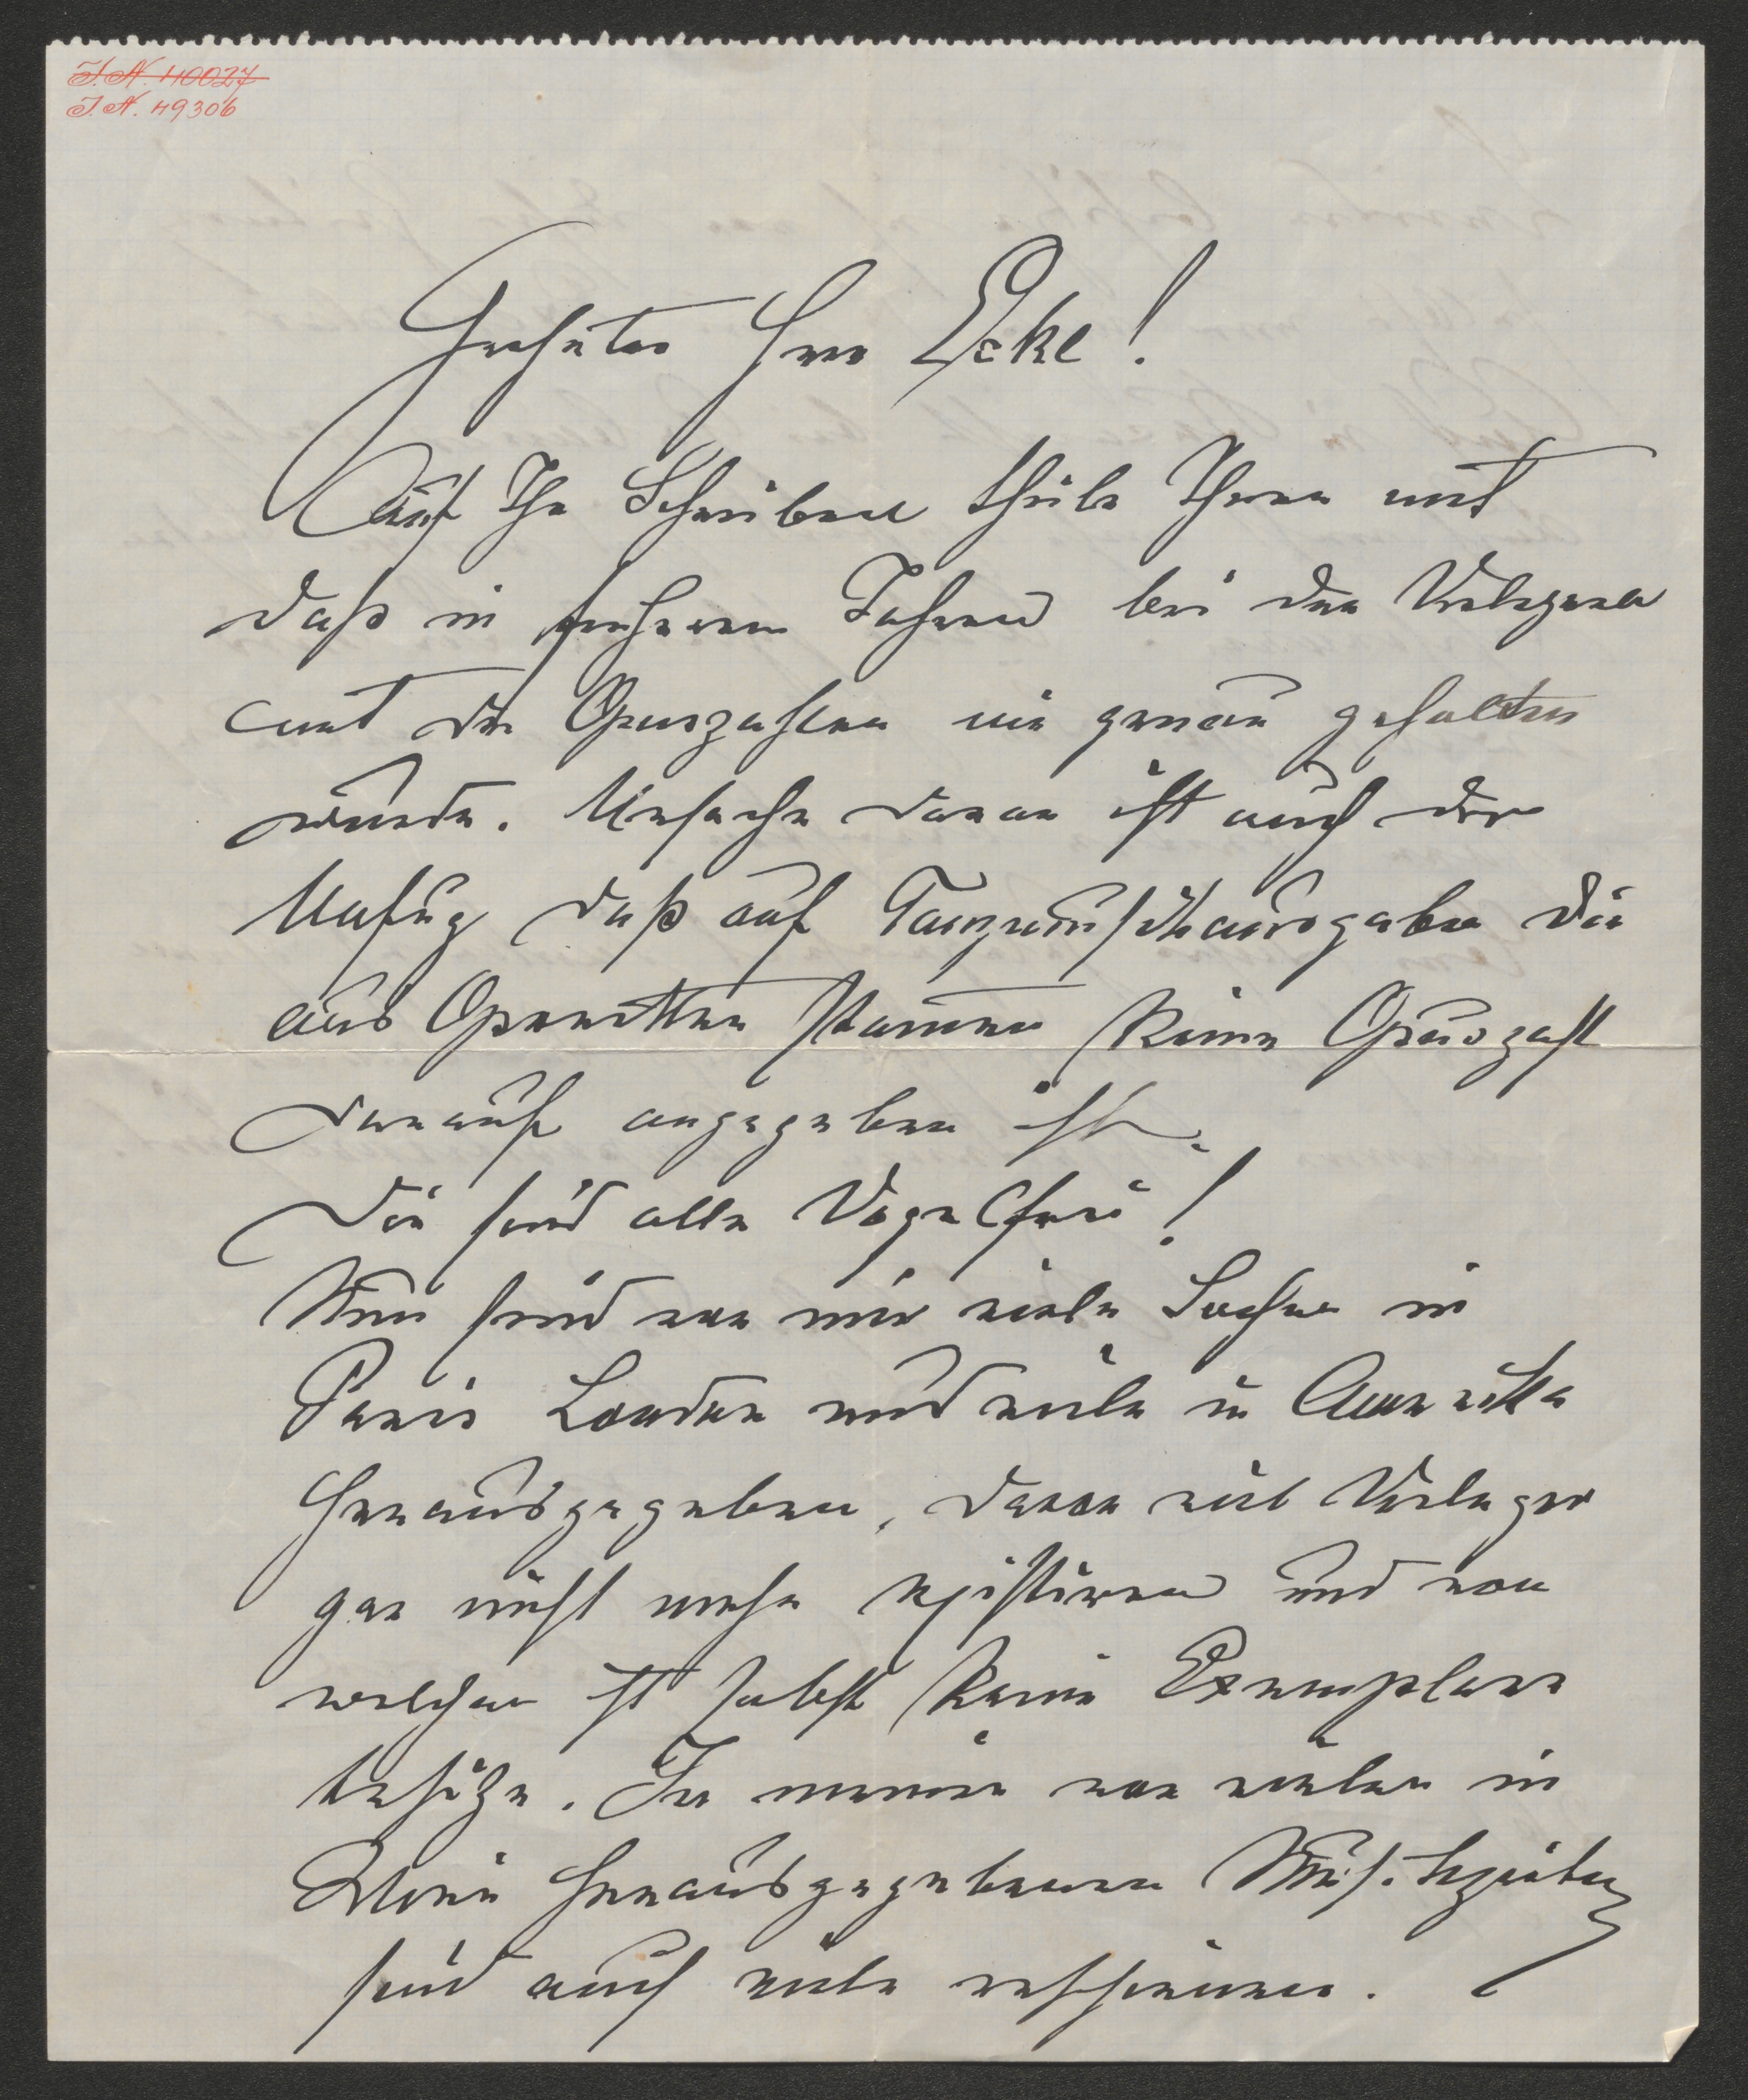 I. N. 40027
I. N. 49306
Geehrter Herr Ecke!
Auf Ihr Schreiben theile Ihnen mit
daß in früheren Jahren bei den Verlegern
mit den Opuszahlen nie genau gehalten
wurde. Ursache daran ist auch der
Unfug daß auf Tanzmusikausgaben die
aus Operetten stammen keine Opuszahl
darauf angegeben ist.
Die sind alle Vogelfrei!
Nun sind von mir viele Sachen in
Paris London und viele in Amerika
herausgegeben, davon viel Verleger
gar nicht mehr existiren und von
welchen ich selbst keine Exemplare
besitze. In von vielen in
Wien herausgegebenen Mus.
sind auch viele erschienen.